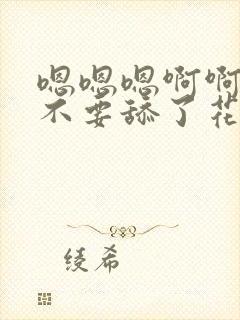 嗯嗯嗯啊啊
不要舔了花
绫希